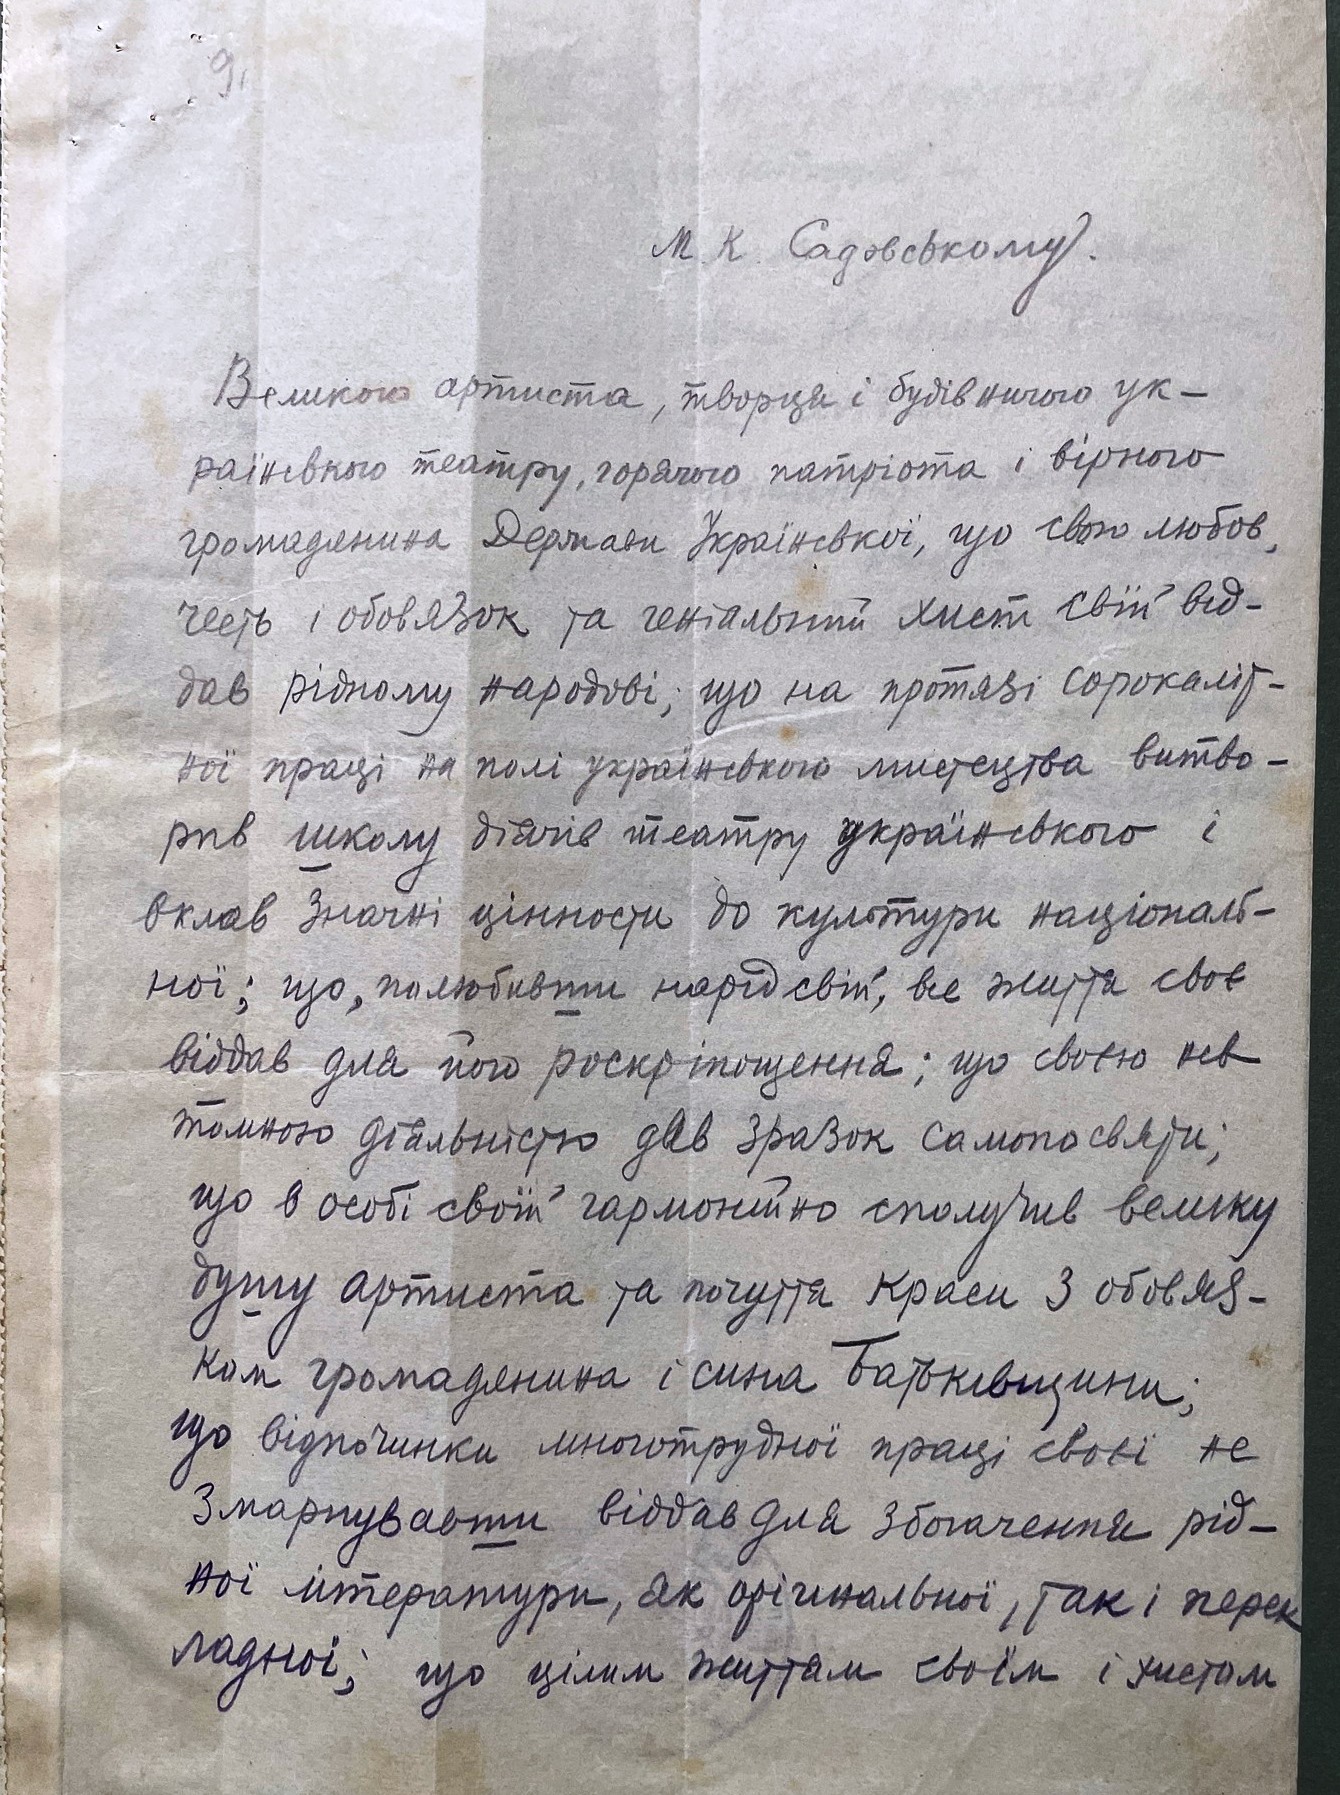 9.
М. К. Садовському.
Великого артиста, творця і будівничого ук-
раїнського театру, горячого патріота і вірного
громадянина Держави Української, що свою любов,
честь і обовязок та геніальний хист свій від-
дав рідному народові; що на протязі сорокаліт-
ної праці на полі українського мистецтва витво-
рив школу діячів театру українського і
вклав значні цінности до культури національ-
ної; що, полюбивши нарід свій, все життя своє
віддав для його роскріпощення; що своєю нев
томною діяльністю дав зразок самопосвяти;
що в особі своїй гармонійно сполучив велику
душу артиста та почуття краси з обовяз-
ком громадянина і сина Батьківщини;
що відпочинки многотрудної праці своєї не
змарнувавши віддав для збогачення рід-
ної літератури, як орігінальної, так і перек
ладної; що цілим життям своїм і хистом